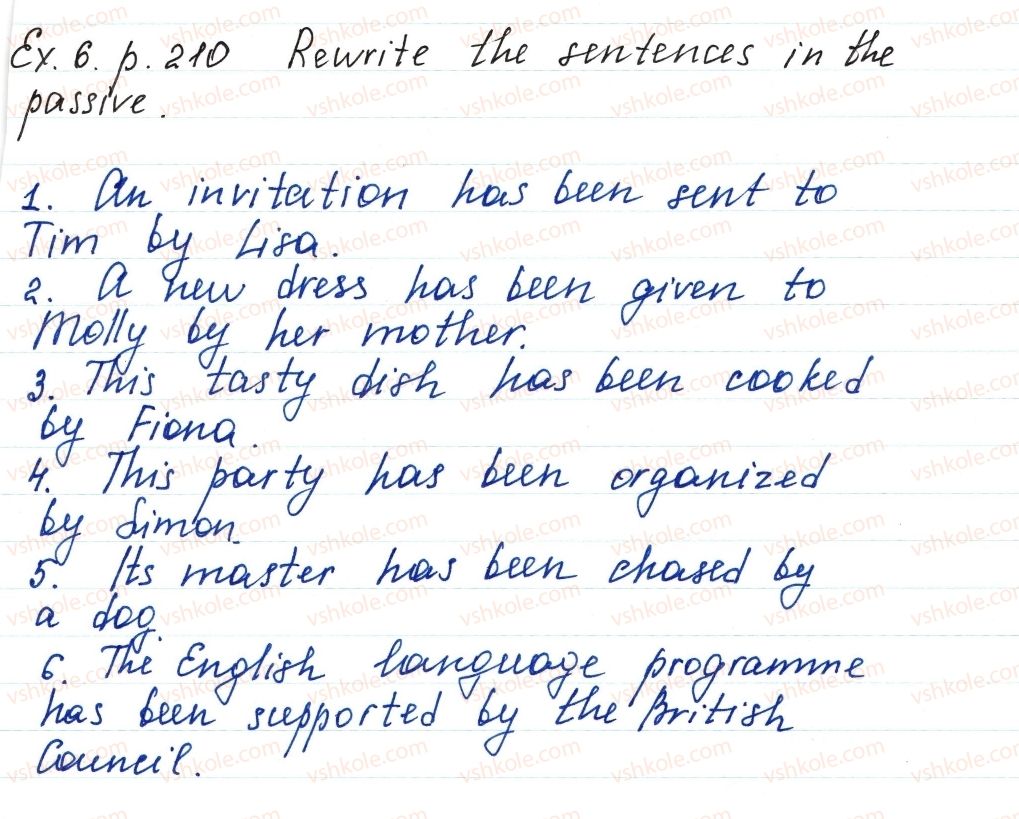 Ex. 6. p. 210 Rewrite the sentences in the
passive.
1. An invitation has been sent to
Tim by Lisa.
2. A new dress has been given to
Molly by her mother.
3. This tasty dish has been cooked
by Fiona.
4. This party has been organized
by Simon.
5. Its master has been chased by
a dog.
6. The English language programme
has been supported by the British
Council.